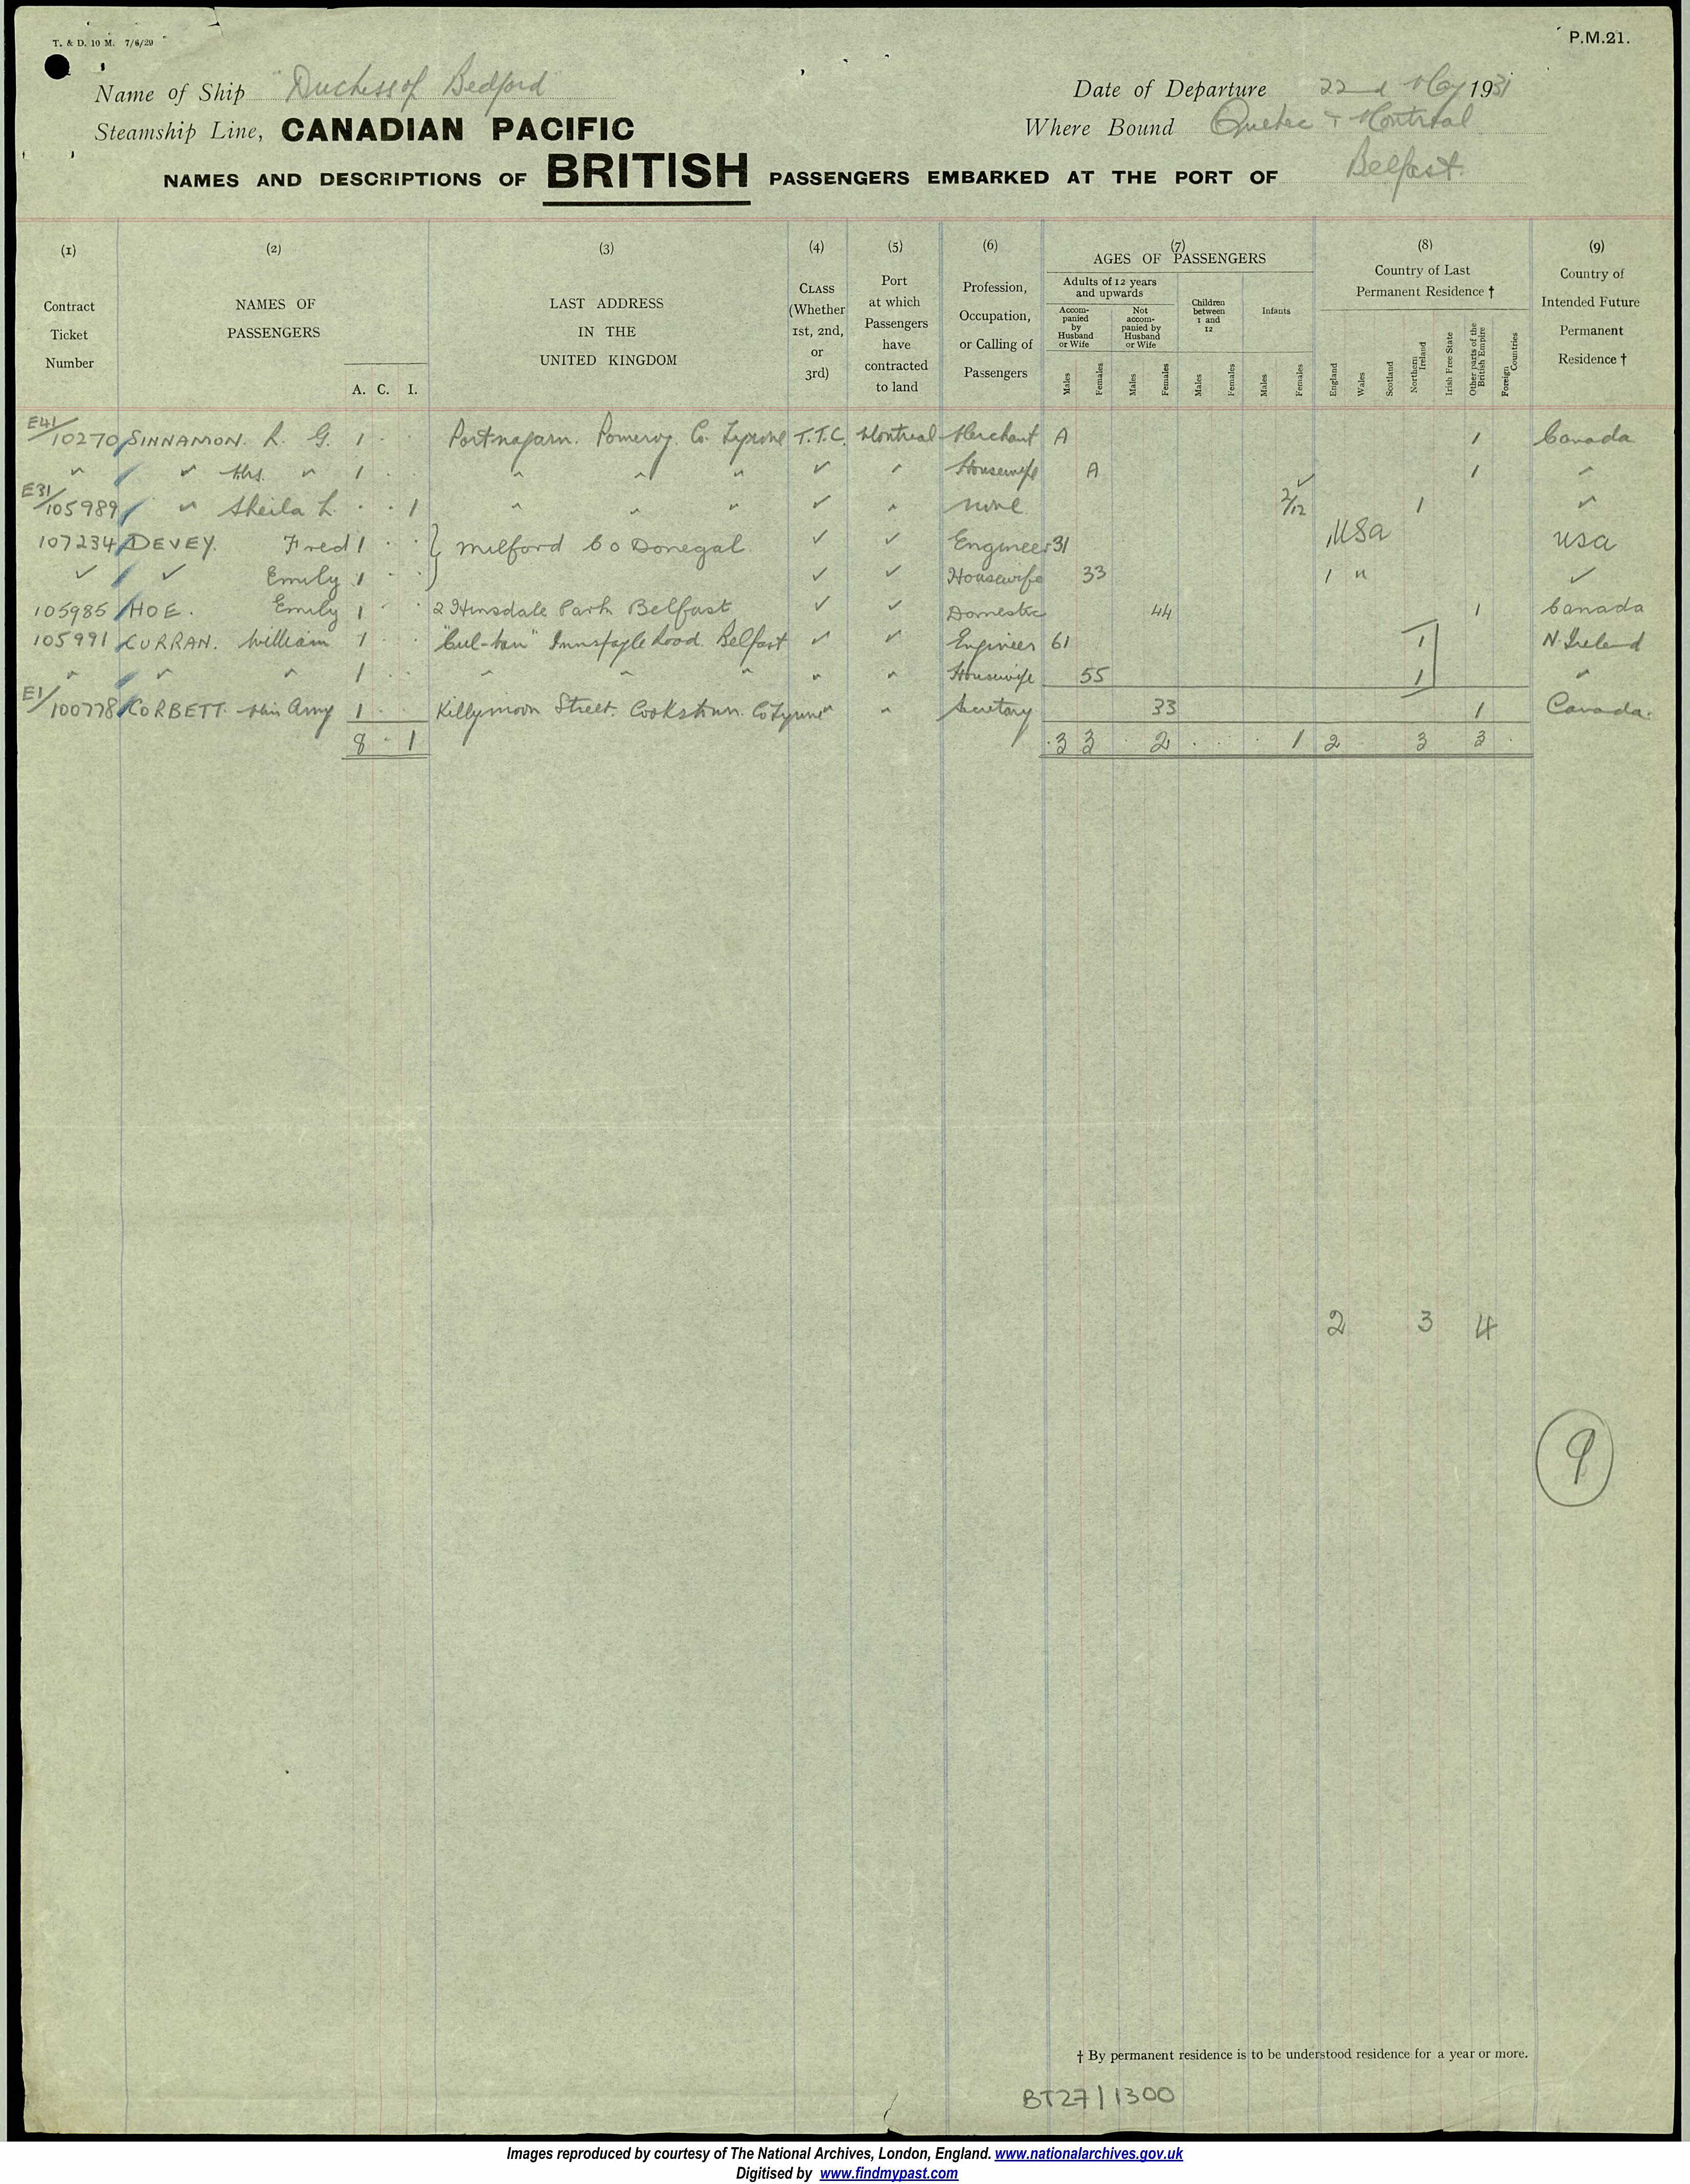 T. & D. 10 M. 7/6/29
P.M.21.
Name of Ship "Duchess of Bedford" Date of Departure 22nd May 1931
Steamship Line, CANADIAN PACIFIC Where Bound Quebec & Montreal
NAMES AND DESCRIPTIONS OF BRITISH PASSENGERS EMBARKED AT THE PORT OF Belfast.
(1) Contract Ticket Number
(2) NAMES OF PASSENGERS A. C. I.
(3) LAST ADDRESS IN THE UNITED KINGDOM
(4) CLASS (Whether 1st, 2nd, or 3rd)
(5) Port at which Passengers have contracted to land
(6) Profession, Occupation, or Calling of Passengers
(7) AGES OF PASSENGERS
Adults of 12 years and upwards
Accompanied by Husband or Wife Males Females
Not accompanied by Husband or Wife Males Females
Children between 1 and 12 Males Females
Infants Males Females
(8) Country of Last Permanent Residence †
England Wales Scotland Northern Ireland Irish Free State Other parts of the British Empire Foreign Countries
(9) Country of Intended Future Permanent Residence †
E41/10270 SINNAMON. R. G. 1 Pomeroy. Co. Tyrone T.T.C. Montreal Merchant A 1 Canada
" " Mrs. " 1 " " " ✓ " Housewife A 1 "
E31/105989 " Sheila L. 1 " " " ✓ " none 2/12 1 ✓
107234 DEVEY. Fred 1 } Milford Co Donegal. ✓ ✓ Engineer 31 1 USA USA
✓ ✓ Emily 1 ✓ ✓ Housewife 33 1 " ✓
105985 HOE. Emily 1 2 Hinsdale Park Belfast ✓ ✓ Domestic 44 1 Canada
105991 CURRAN. William 1 Road. Belfast ✓ ✓ Engineer 61 1 N. Ireland
" " " 1 " " " " " Housewife 55 1 "
E1/100778 CORBETT. Miss Amy 1 Killymoon Street. Cookstown. Co Tyrone " " Secretary 33 1 Canada.
8 1 3 3 2 1 2 3 3
2 3 4
9
† By permanent residence is to be understood residence for a year or more.
BT27/1300
Images reproduced by courtesy of The National Archives, London, England. www.nationalarchives.gov.uk
Digitised by www.findmypast.com